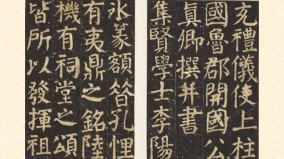 充禮儀使上柱
國魯郡開國公
真卿撰并書
集賢學士李陽
氷篆額昔孔悝
有夷鼎之銘陸
機有祠堂之頌
皆所以發揮祖